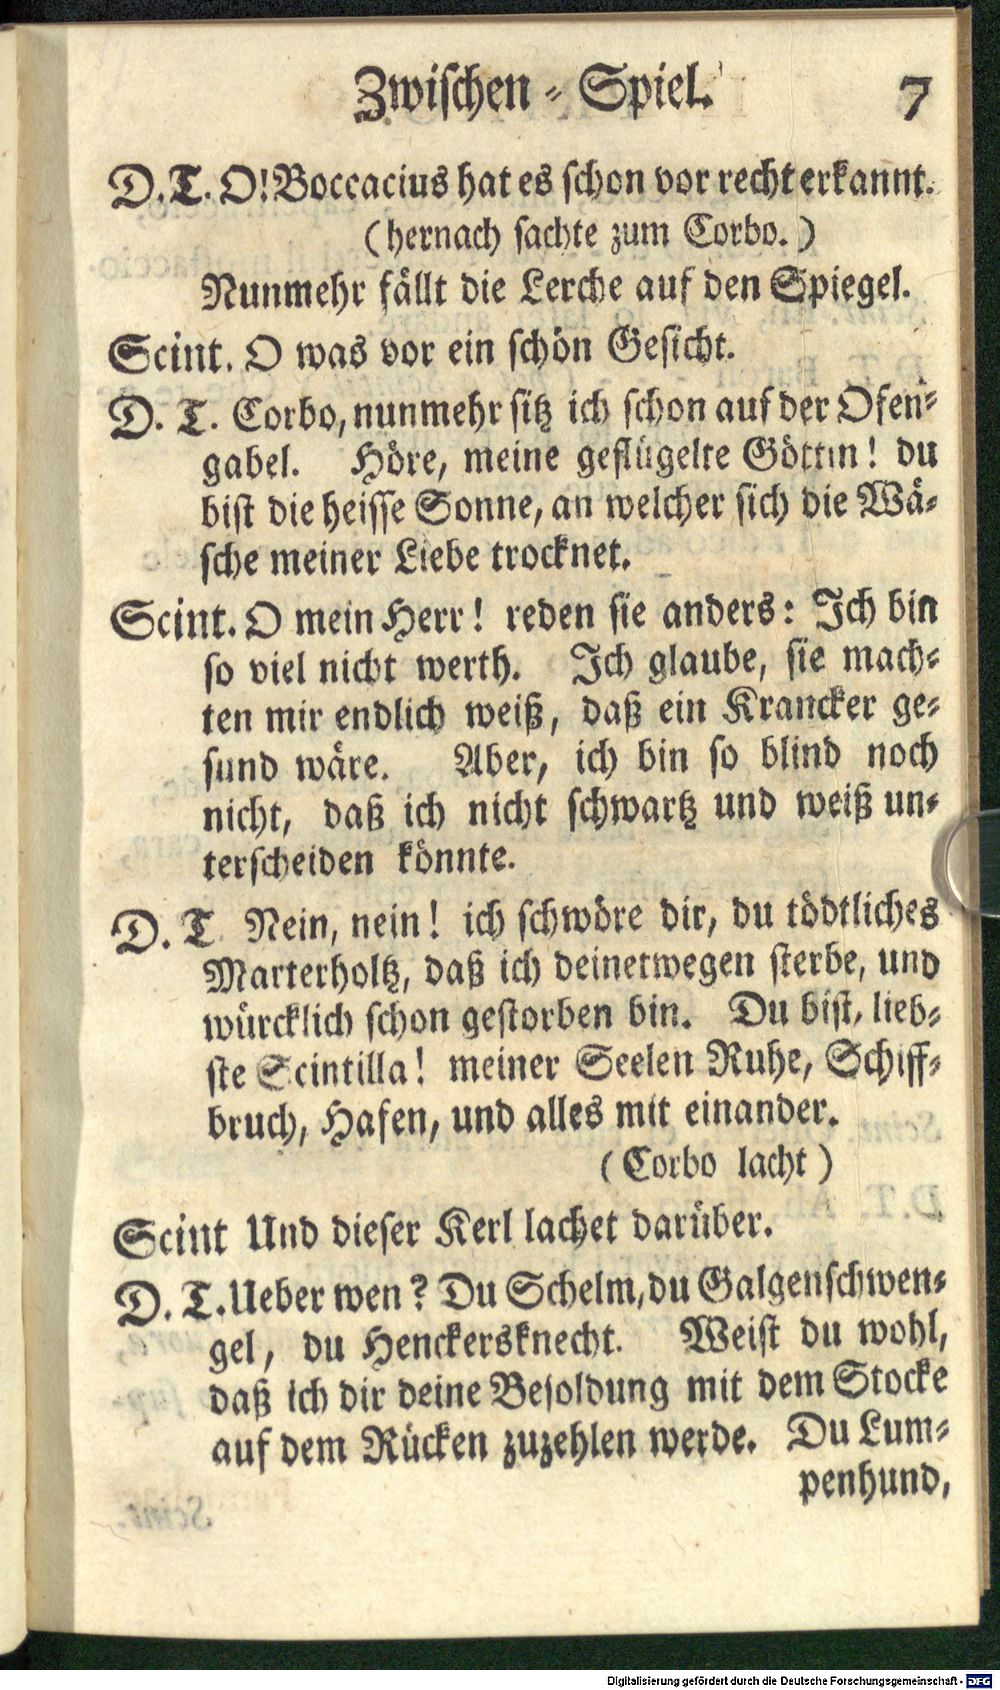 Zwischen-Spiel. 7
D. T. O! Boccacius hat es schon vor recht erkannt.
(hernach sachte zum Corbo.)
Nunmehr fällt die Lerche auf den Spiegel.
Scint. O was vor ein schön Gesicht.
D. T. Corbo, nunmehr sitz ich schon auf der Ofen-
gabel. Höre, meine geflügelte Göttin! du
bist die heisse Sonne, an welcher sich die Wä-
sche meiner Liebe trocknet.
Scint. O mein Herr! reden sie anders: Ich bin
so viel nicht werth. Ich glaube, sie mach-
ten mir endlich weiß, daß ein Krancker ge-
sund wäre. Aber, ich bin so blind noch
nicht, daß ich nicht schwartz und weiß un-
terscheiden könnte.
D. T Nein, nein! ich schwöre dir, du tödtliches
Marterholtz, daß ich deinetwegen sterbe, und
würcklich schon gestorben bin. Du bist, lieb-
ste Scintilla! meiner Seelen Ruhe, Schiff-
bruch, Hafen, und alles mit einander.
(Corbo lacht)
Scint Und dieser Kerl lachet darüber.
D. T. Ueber wen? Du Schelm, du Galgenschwen-
gel, du Henckersknecht. Weist du wohl,
daß ich dir deine Besoldung mit dem Stocke
auf dem Rücken zuzehlen werde. Du Lum-
penhund,
Digitalisierung gefördert durch die Deutsche Forschungsgemeinschaft - DFG